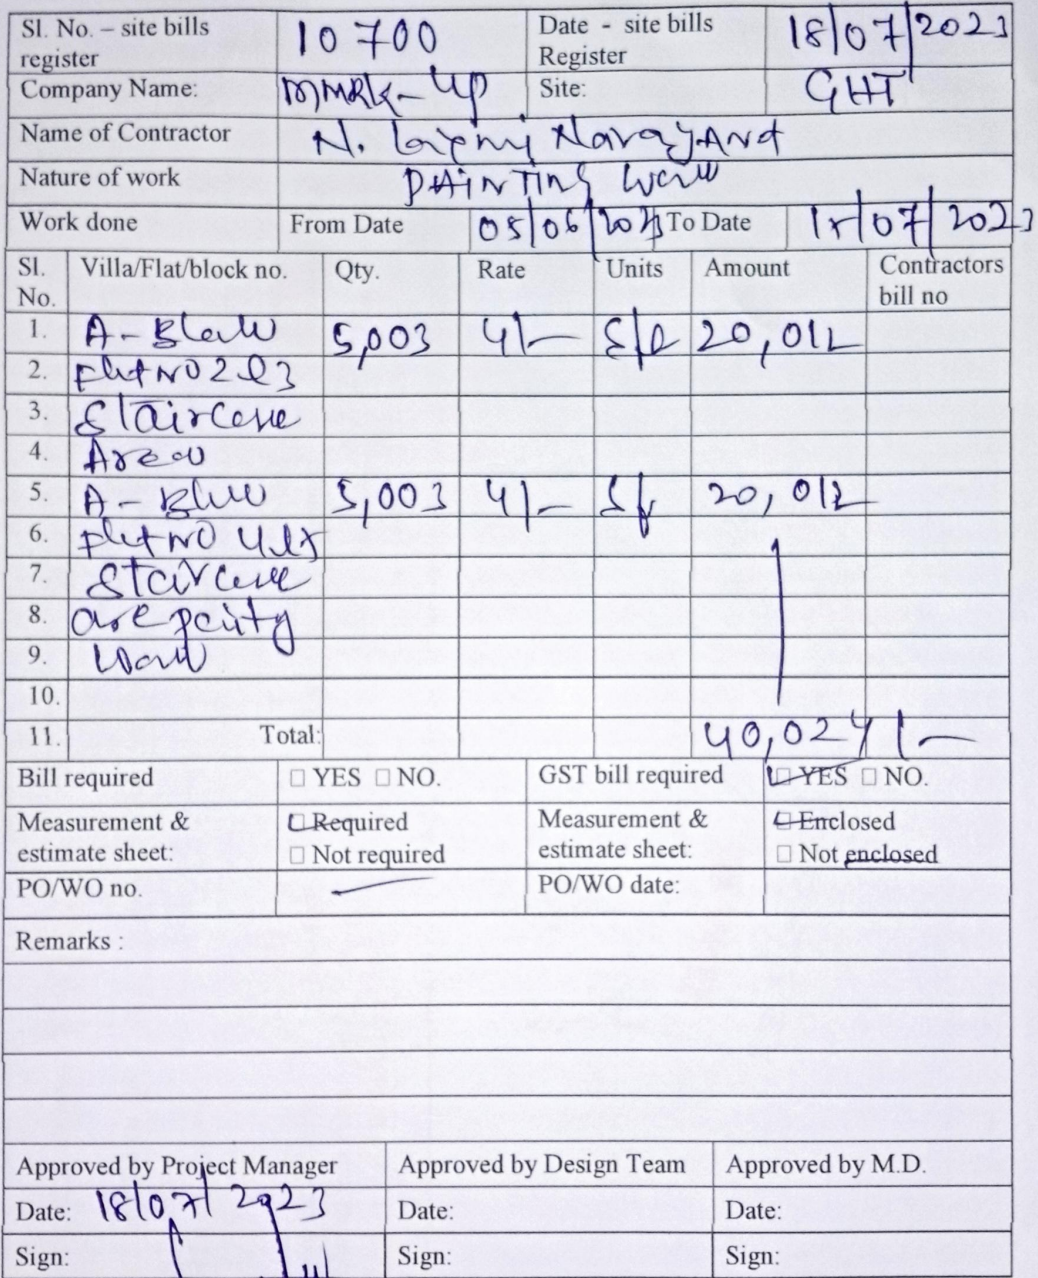 Sl. No. – site bills register 10700 Date - site bills Register 18/07/2023
Company Name: MMRK-UP Site: GHT
Name of Contractor N. Narayana
Nature of work PAINTING Work
Work done From Date 05/06/2023 To Date 07/2023
Sl. No. Villa/Flat/block no. Qty. Rate Units Amount Contractors bill no
1. A-Block 5,003 4/- 20,012
2. Flat NO 2&3
3. Staircase
4. Area
5. A-Block 5,003 4/- Sf 20,012
6. Flat NO 4&5
7. Staircase
8. are painty
9. Work
10.
11. Total: 40,024/-
Bill required □ YES □ NO. GST bill required □ YES □ NO.
Measurement & estimate sheet: □ Required □ Not required Measurement & estimate sheet: □ Enclosed □ Not enclosed
PO/WO no. PO/WO date:
Remarks :
Approved by Project Manager Approved by Design Team Approved by M.D.
Date: 18/07/2023 Date: Date:
Sign: Sign: Sign: